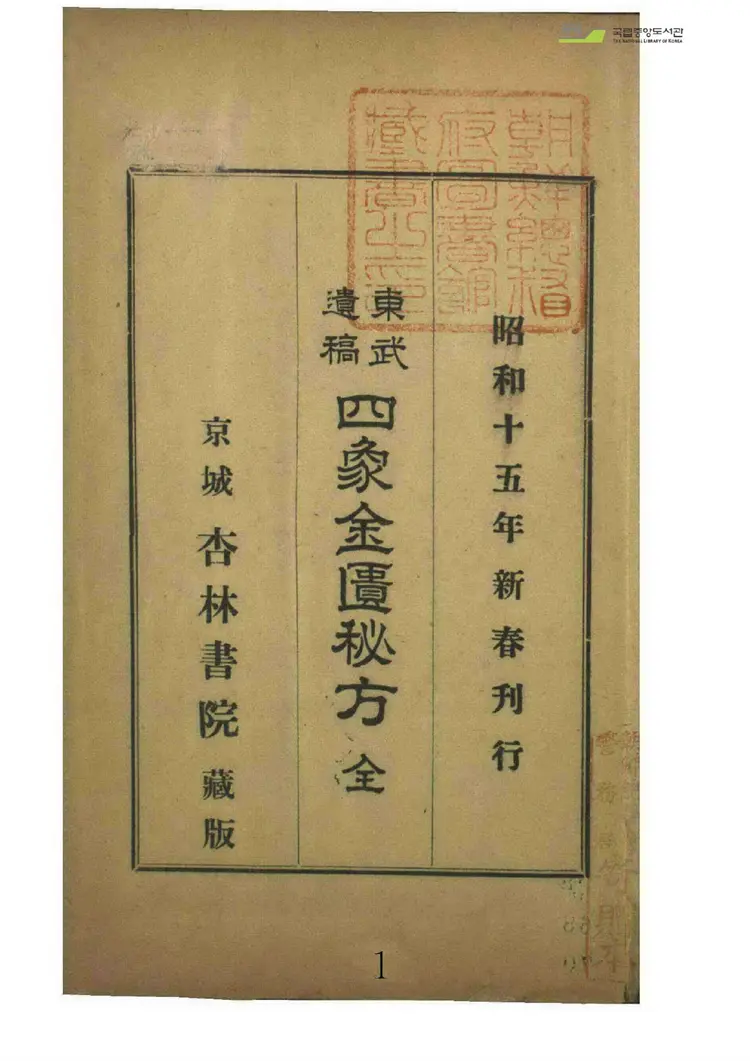 국립중앙도서관
THE NATIONAL LIBRARY OF KOREA
朝鮮總督
府圖書館
藏書之印
昭和十五年新春刊行
東武
遺稿
四象金匱秘方 全
京城 杏林書院 藏版
1